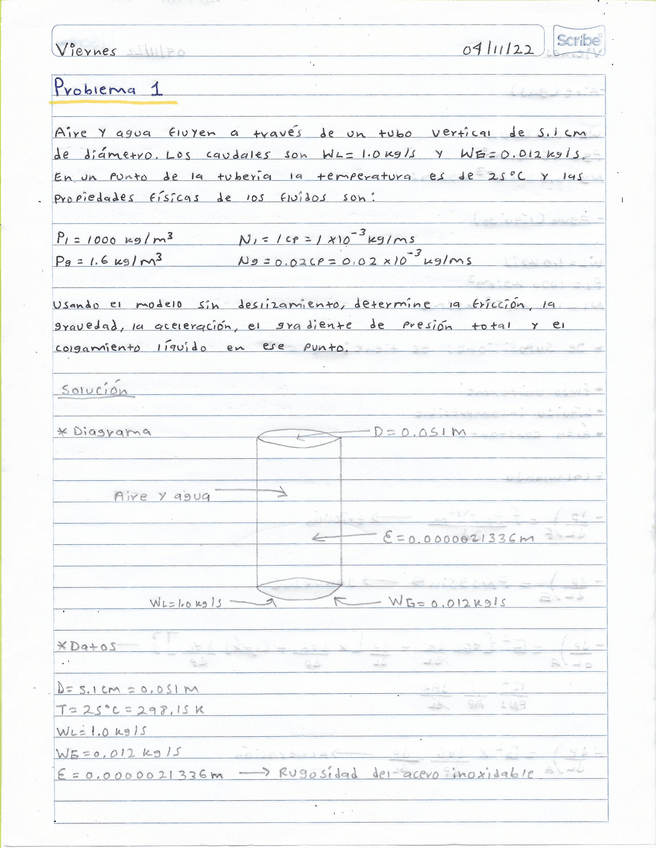 Viernes 04/11/22
Scribe
Problema 1
Aire y agua fluyen a través de un tubo vertical de 5.1 cm
de diámetro. Los caudales son WL= 1.0 kg/s y WG= 0.012 kg/s.
En un punto de la tubería la temperatura es de 25°C y las
propiedades físicas de los fluidos son:
Pl = 1000 kg/m³ Nl = 1cp = 1 x10⁻³ kg/ms
Pg = 1.6 kg/m³ Ng = 0.02cp = 0.02 x10⁻³ kg/ms
Usando el modelo sin deslizamiento, determine la fricción, la
gravedad, la aceleración, el gradiente de presión total y el
colgamiento líquido en ese punto.
Solución
* Diagrama
D= 0.051 m
Aire y agua
Ɛ= 0.0000021336m
WL= 1.0 kg/s WG= 0.012 kg/s
* Datos
D= 5.1 cm = 0.051 m
T= 25°C = 298.15 K
WL= 1.0 kg/s
WG= 0.012 kg/s
Ɛ = 0.0000021336m → Rugosidad del acero inoxidable